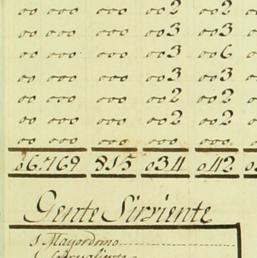 oo ooo ooo oo2 oo2
oo ooo ooo oo3 oo3
oo ooo ooo oo3 oo6
oo ooo ooo oo3 oo3
oo ooo ooo oo2 oo2
oo ooo ooo oo2 oo2
oo ooo ooo ooo ooo
o6.769 815 o34 o42
Gente Sirviente
1 Mayordomo